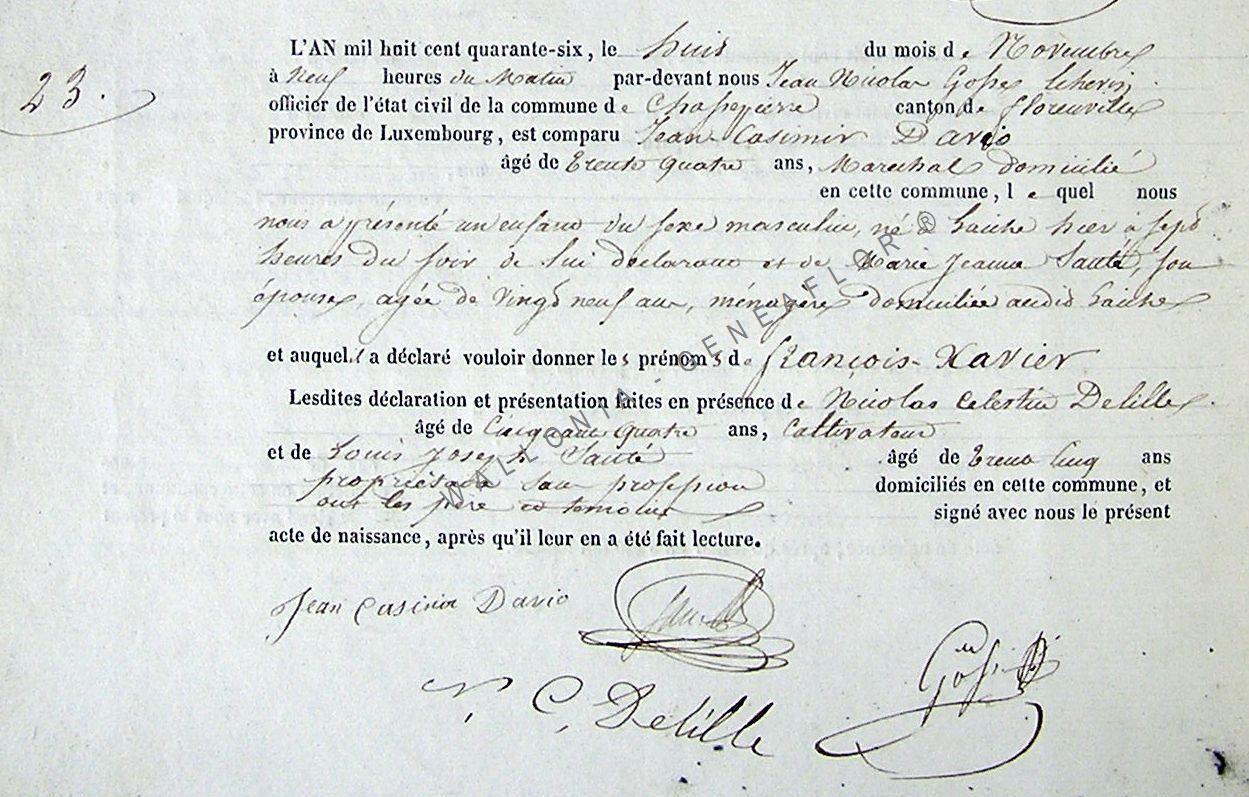 23.
L'AN mil huit cent quarante-six, le huit du mois de Novembre
à Neuf heures du Matin par-devant nous Jean Nicolas Gosse
officier de l'état civil de la commune de Chassepierre canton de florenville
province de Luxembourg, est comparu Jean Casimir Dario
âgé de trente quatre ans, Marechal domicilié
en cette commune, lequel nous
nous a présenté un enfant du sexe masculin, né à Laiche hier à sept
heures du soir de lui declarant et de Marie Jeanne Santé, son
épouse, agée de vingt neuf ans, ménagère domiciliée audit Laiche
et auquel il a déclaré vouloir donner les prénoms de françois-Xavier
Lesdites déclaration et présentation faites en présence de Nicolas Celestin Delille
âgé de Cinquante quatre ans, Cultivateur
et de Louis Joseph Santé âgé de trente Cinq ans
propriétaire sans profession domiciliés en cette commune, et
ont les père et temoins signé avec nous le présent
acte de naissance, après qu'il leur en a été fait lecture.
WALLONIA - GENEAFLOR ®
Jean Casimir Dario
N. C. Delille